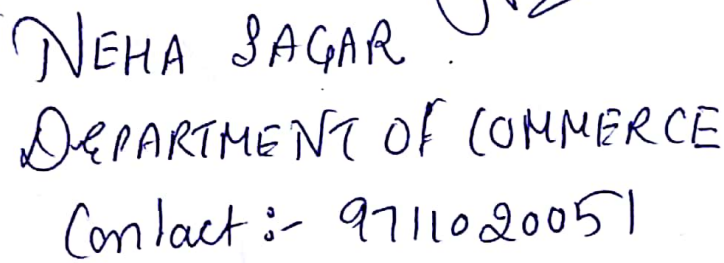 NEHA SAGAR.
DEPARTMENT OF COMMERCE
Contact :- 9711020051